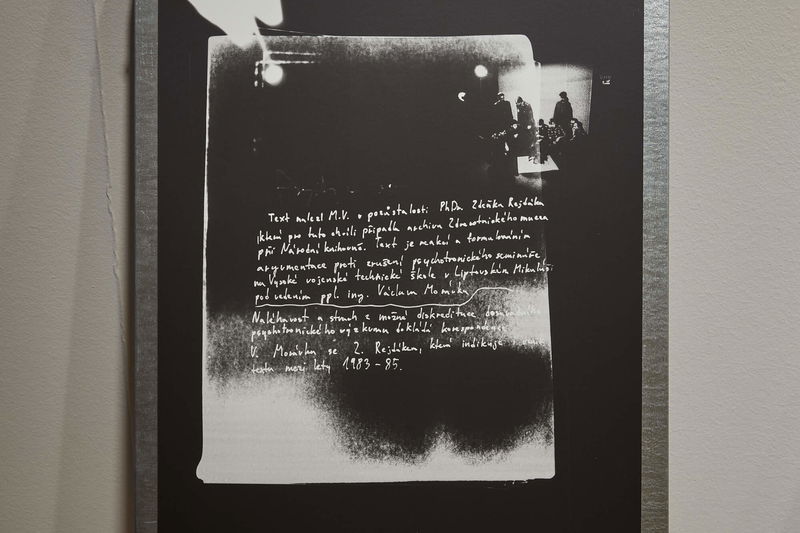 Text nalezl M.V. v pozůstalosti PhDr. Zdeňka Rejdáka
která pro tuto chvíli připadla archivu Zdravotnického muzea
při Národní knihovně. Text je reakcí a formulováním
argumentace proti zrušení psychotronického semináře
na Vysoké vojenské technické škole v Liptovském Mikuláši
pod vedením ppl. ing. Václava Morávka
Naléhavost a strach z možné diskreditace dosavadního
psychotronického výzkumu dokládá korespondence
V. Morávka se Z. Rejdákem, která indikuje
textu mezi lety 1983-85.